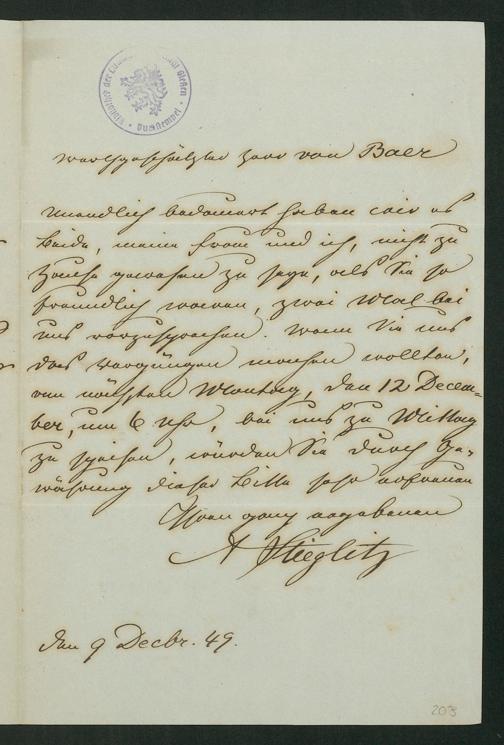 Werthgeschätzter Herr von Baer
Unendlich bedauert haben wir es
Beide, meine Frau und ich, nicht zu
Hause gewesen zu seyn, als Sie so
freundlich waren, zwei Mal bei
uns vorzusprechen. Wenn Sie uns
das Vergnügen machen wollten,
am nächsten Montag, den 12 Decem=
ber, um 6 Uhr, bei uns zu Mittag
zu speisen, würden Sie durch Ge-
währung dieser Bitte sehr erfreuen
Ihren ganz ergebenen
A Stieglitz
den 9 Decbr. 49.
203